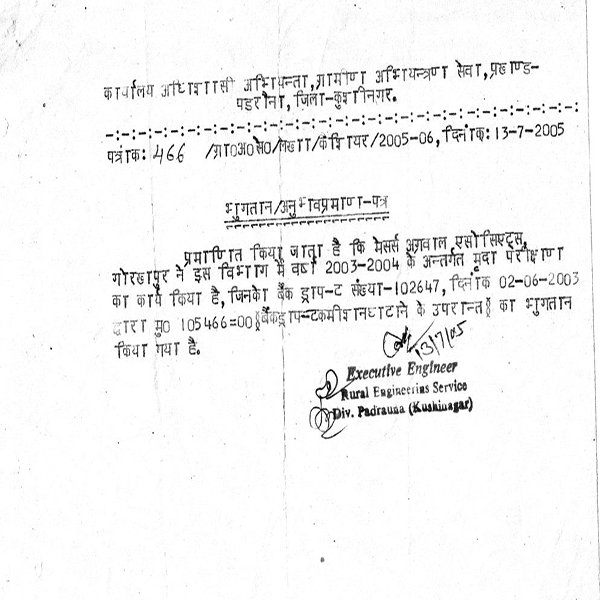 कार्यालय अधिशासी अभियन्ता,ग्रामीण अभियन्त्रण सेवा,प्रखण्ड-
पडरौना,जिला-कुशीनगर.
-:-:-:-:-:-:-:-:-:-:-:-:-:-:-:-:-:-:-:-:-:-:-:-:-:-:-:-:-:
पत्रांक: 466 /ग्रा0अ0से0/लेखा/कैशियर/2005-06, दिनांक: 13-7-2005
भुगतान/अनुभवप्रमाण-पत्र
प्रमाणित किया जाता है कि मेसर्स अग्रवाल एसोसिएट्स,
गोरखपुर ने इस विभाग में वर्ष 2003-2004 के अन्तर्गत मृदा परीक्षण
का कार्य किया है, जिनको बैंक ड्राफ्ट संख्या-102647, दिनांक 02-06-2003
द्वारा मु0 105466=00 बैंकड्राफ्टकमीशनघटाने के उपरान्त का भुगतान
किया गया है.
13/7/05
Executive Engineer
Rural Engineering Service
Div. Padrauna (Kushinagar)